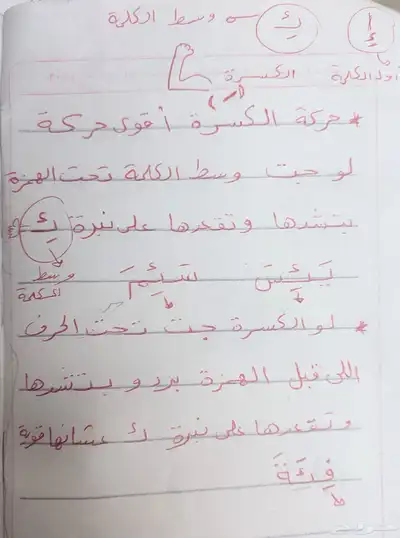 إ ئـ وسط الكلمة
أول الكلمة الكسرة
* حركة الكسرة أقوى حركة
لو جت وسط الكلمة تحت الهمزة
بتشدها وتقعدها على نبرة ئـ
يَئِسَ سَئِمَ وسط الكلمة
* لو الكسرة جت تحت الحرف
اللى قبل الهمزة برد و بتشدها
و تقعدها على نبرة ئـ عشانها قوية
فِئَة